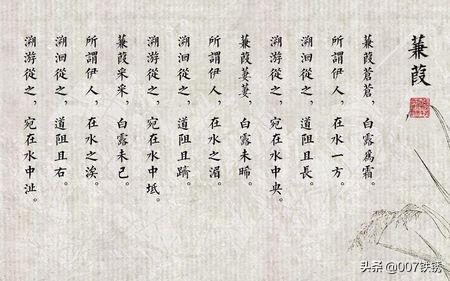 蒹葭
蒹葭蒼蒼，白露爲霜。
所謂伊人，在水一方。
溯洄從之，道阻且長。
溯游從之，宛在水中央。
蒹葭萋萋，白露未晞。
所謂伊人，在水之湄。
溯洄從之，道阻且躋。
溯游從之，宛在水中坻。
蒹葭采采，白露未已。
所謂伊人，在水之涘。
溯洄從之，道阻且右。
溯游從之，宛在水中沚。
头条 @007铁锈